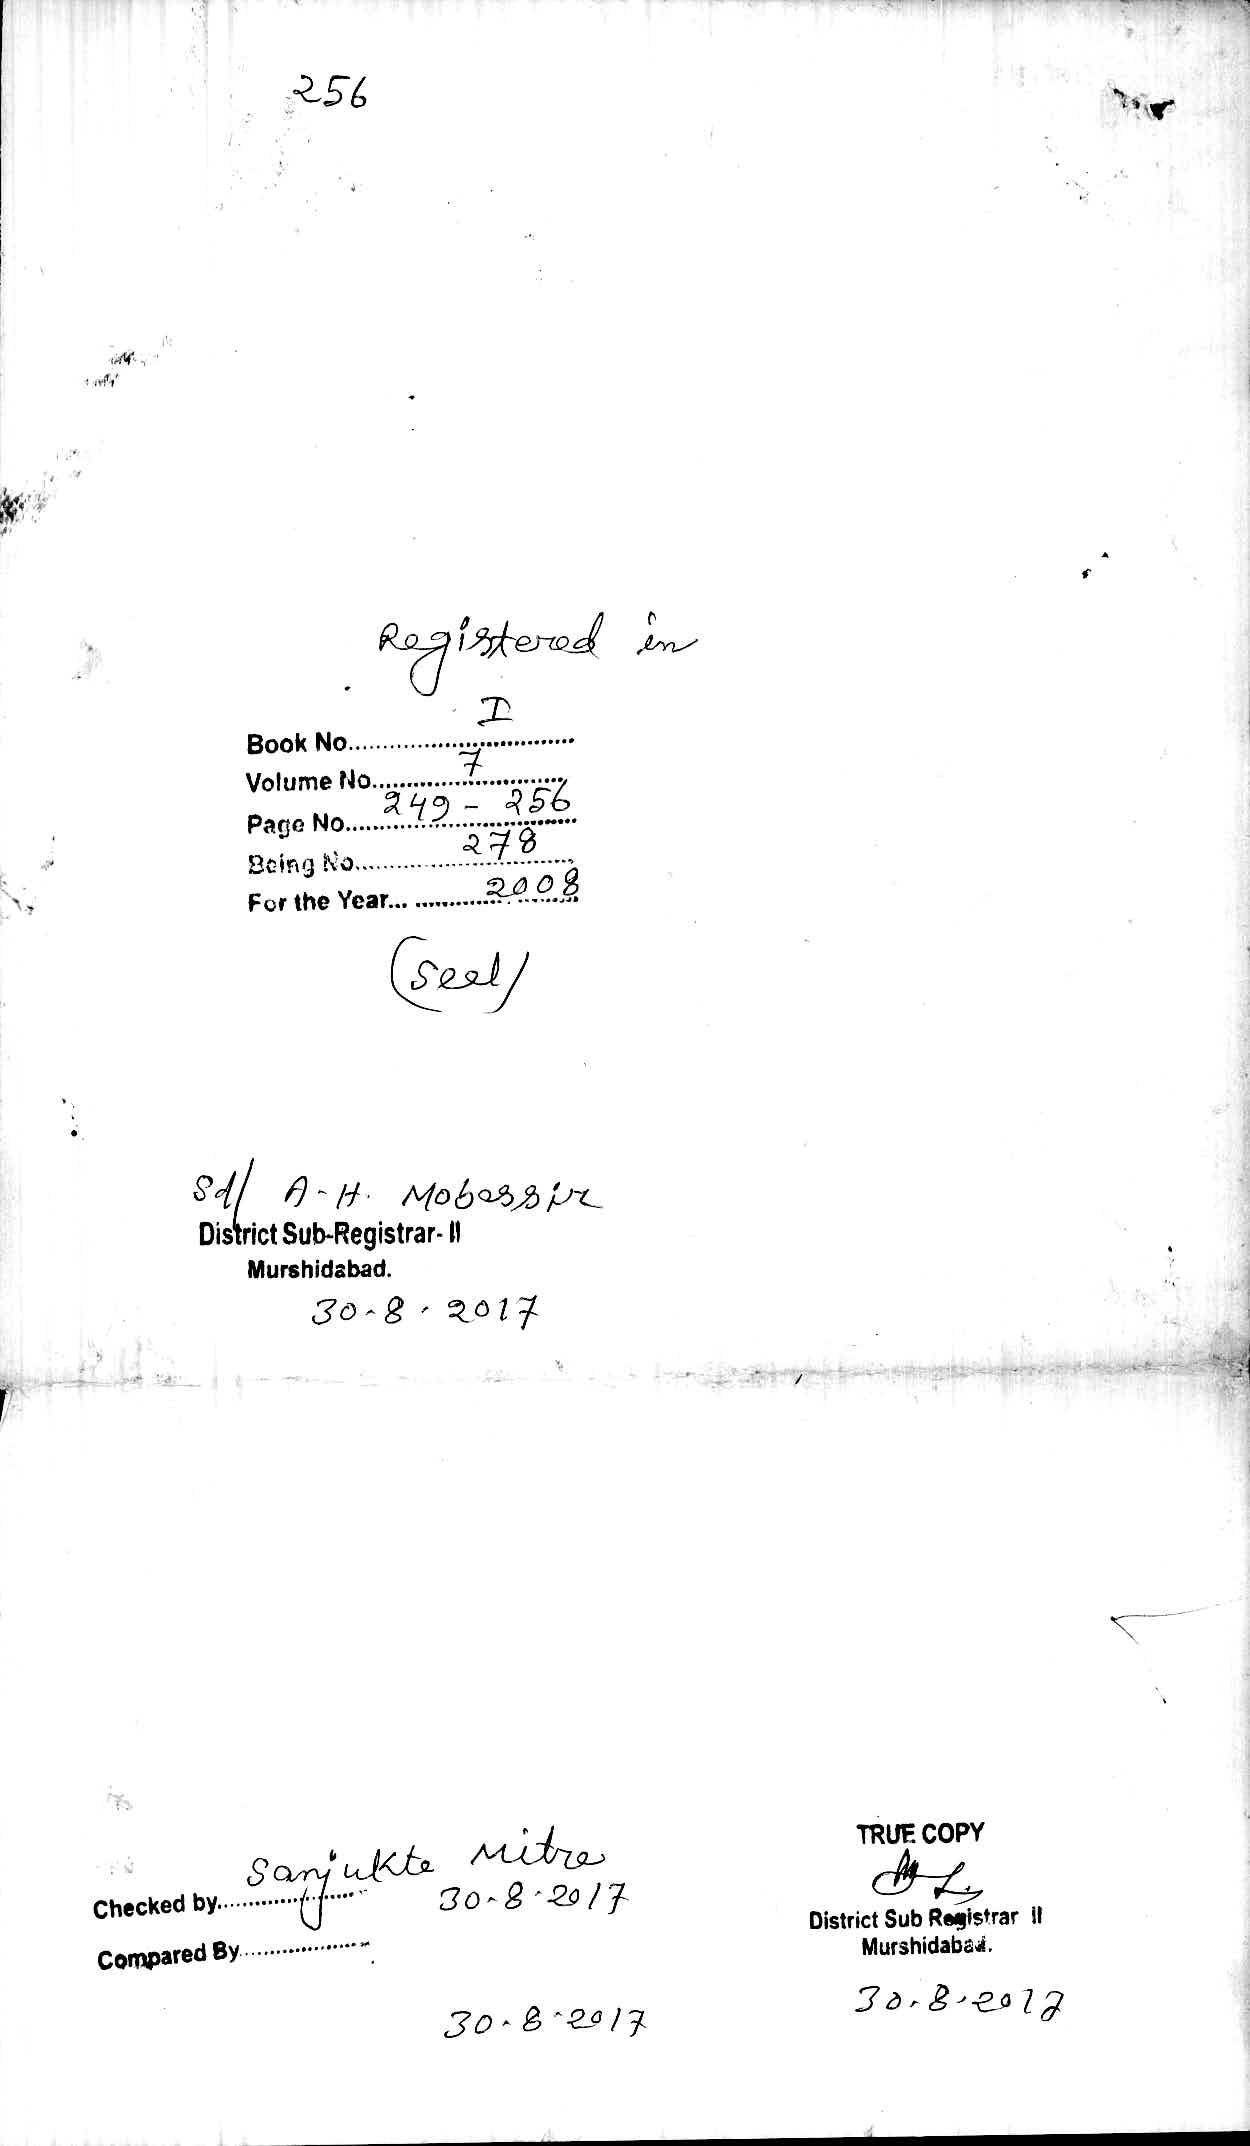 256
Registered in
Book No.................I
Volume No.................7
Page No.................249 - 256
Being No.................278
For the Year... .................2008
(Seal)
Sd/ A-H. Mobassir
District Sub-Registrar- II
Murshidabad.
30-8-2017
Checked by.................Sanjukta Mitra
30-8-2017
Compared By.................
30-8-2017
TRUE COPY
District Sub Registrar II
Murshidabad.
30-8-2017